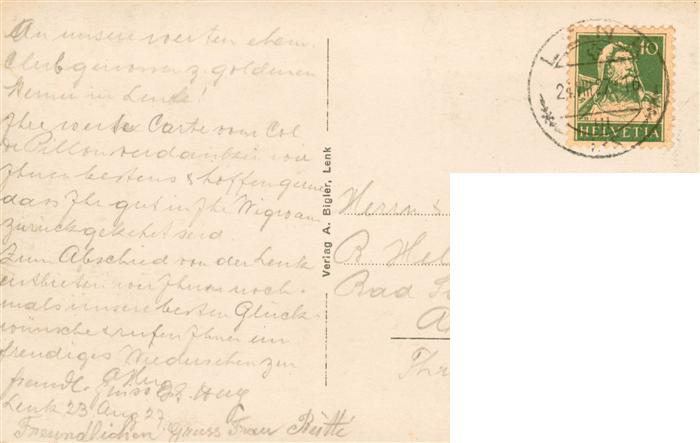 An unsere werten ehem.
Clubgenossen z. goldenen
in Lenk!
Ihre werte Carte vom Col
de Pillon verdanken wir
Ihnen bestens & hoffen gerne
dass Ihr gut in Ihr Wigwam
zurückgekehrt seid
Zum Abschied von der Lenk
entbieten wir Ihnen noch-
mals unsere besten Glück-
wünsche & rufen Ihnen ein
freudiges Wiedersehen zu
freundl. Gruss
Lenk 23 Aug 27.
Freundlichen Gruss Frau
Verlag A. Bigler, Lenk
10
HELVETIA
Herrn &
R. Hel
Bad